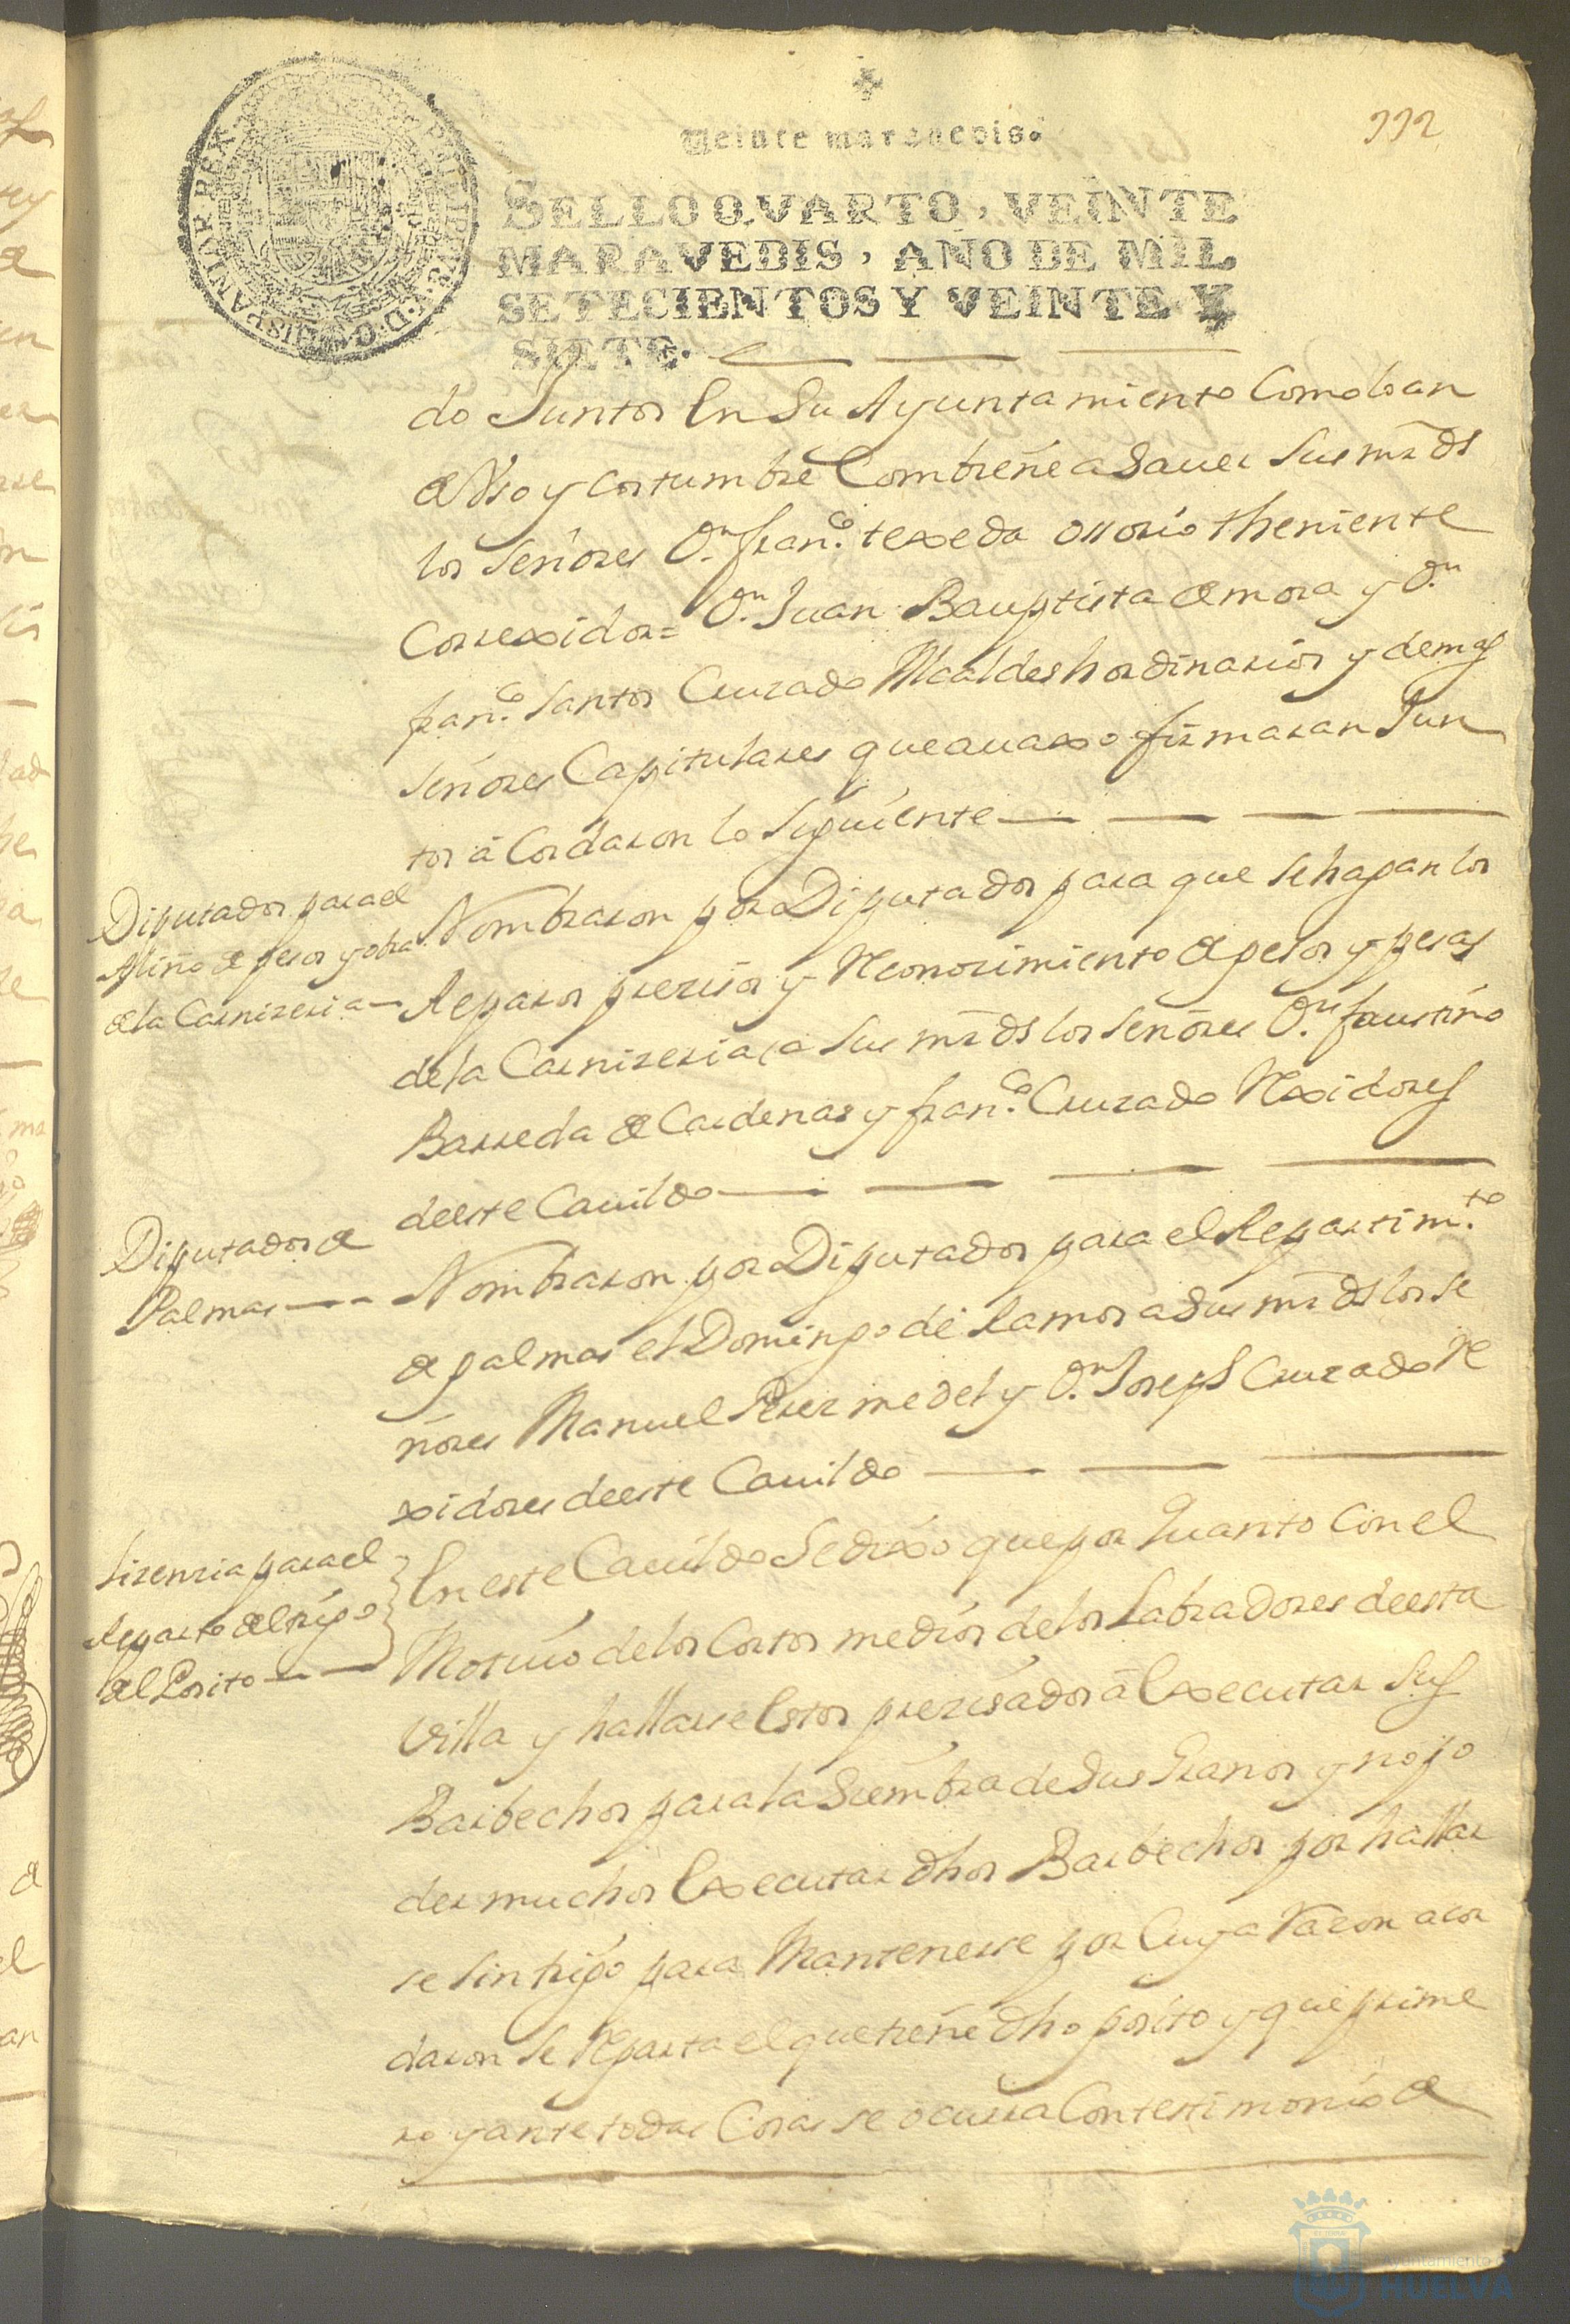 Veinte maravedis.
992
SELLO QVARTO, VEINTE
MARAVEDIS, AÑO DE MIL
SETECIENTOS Y VEINTE Y
SIETE.
do Juntos En Su Ayuntamiento Como loan
de Uso y costumbre Combiene a Sauer Sus mrds
los Señores Dn. franco. texeda ossorio theniente
Correxidor= Dn. Juan Bauptista de mora y Dn.
franco. Santos Cruzado Alcaldes hordinarios y demas
Señores Capitulares que auaxo firmaran Jun
tos â Cordaron lo Siguiente
Diputados para el
Aliño de pesos y obra
de la Carniseria
Nombraron por Diputados para que se hagan los
Reparos presisos y Reconozimiento de pesos y pesas
de la Carnizeria, a Sus mrds los Señores Dn. faustino
Barreda de Cardenas y franco. Cruzado Rexidores
deeste Cauildo
Diputados de
Palmas
Nombraron por Diputados para el Repartimto.
de palmas el Domingo de Ramos a Sus mrds los Se
ñores Manuel Perez medel y Dn. Joseph Cruzado Re
xidores deeste Cauildo
Lizenzia para el
Reparto del trigo
del Posito
En este Cauildo Se dixo que por Quanto Con el
Motiuo de los Cortos medios de los Labradores deesta
Villa y hallarse Estos prezisados â Executar Sus
Barbechos para la Siembra de Sus Granos y no po
der muchos Executar dhos Barbechos por hallar
se Sin trigo para Mantenerse por Cuya Razon acor
daron Se Reparta el que tiene dho posito y que prime
ro y ante todas Cosas se ocurra Con testimonio de
Ayuntamiento de
HUELVA